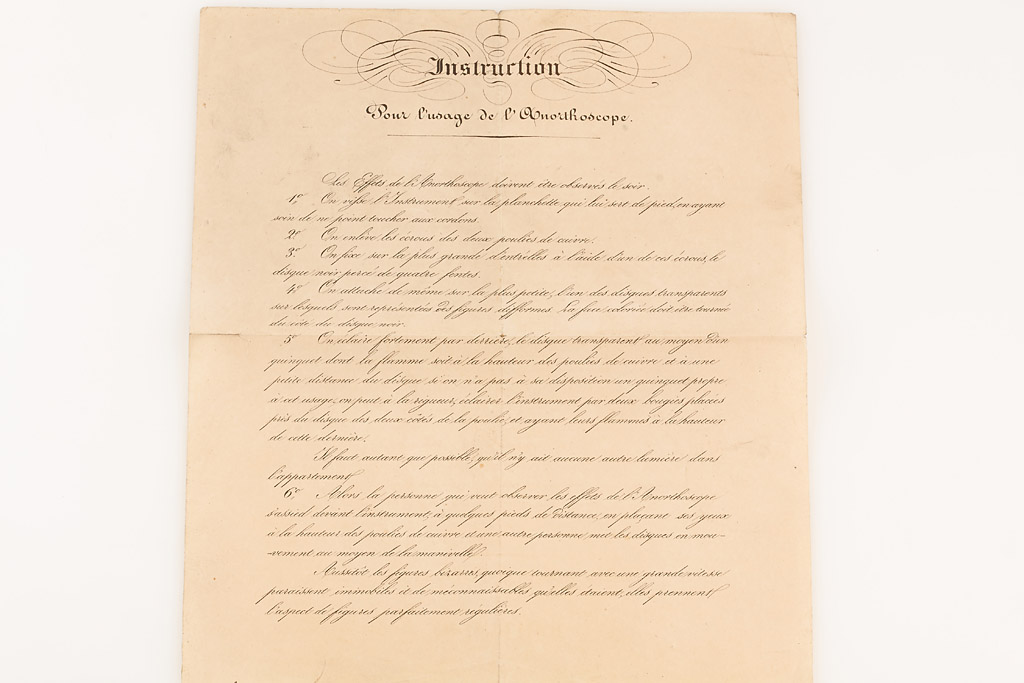 Instruction
Pour l'usage de l'Anorthoscope.
Les Effets de l'Anorthoscope doivent être observés le soir.
1.º On visse l'Instrument sur la planchette qui lui sert de pied, en ayant
soin de ne point toucher aux cordons.
2.º On enlève les écrous des deux poulies de cuivre.
3.º On fixe sur la plus grande d'entr'elles à l'aide d'un de ces écrous, le
disque noir percé de quatre fentes.
4.º On attache de même sur la plus petite, l'un des disques transparents
sur lesquels sont représentées des figures difformes. La face coloriée doit être tournée
du côté du disque noir.
5.º On éclaire fortement par derrière, le disque transparent au moyen d'un
quinquet dont la flamme soit à la hauteur des poulies de cuivre et à une
petite distance du disque si on n'a pas à sa disposition un quinquet propre
à cet usage, on peut à la rigueur, éclairer l'instrument par deux bougies placées
près du disque des deux côtés de la poulie, et ayant leurs flammes à la hauteur
de cette dernière.
Il faut autant que possible, qu'il n'y ait aucune autre lumière dans
l'appartement.
6.º Alors la personne qui veut observer les effets de l'Anorthoscope
s'assied devant l'instrument, à quelques pieds de distance, en plaçant ses yeux
à la hauteur des poulies de cuivre et une autre personne met les disques en mou-
-vement au moyen de la manivelle.
Aussitôt les figures bizarres, quoique tournant avec une grande vitesse
paraissent immobiles et de méconnaissables qu'elles étaient, elles prennent
l'aspect de figures parfaitement régulières.